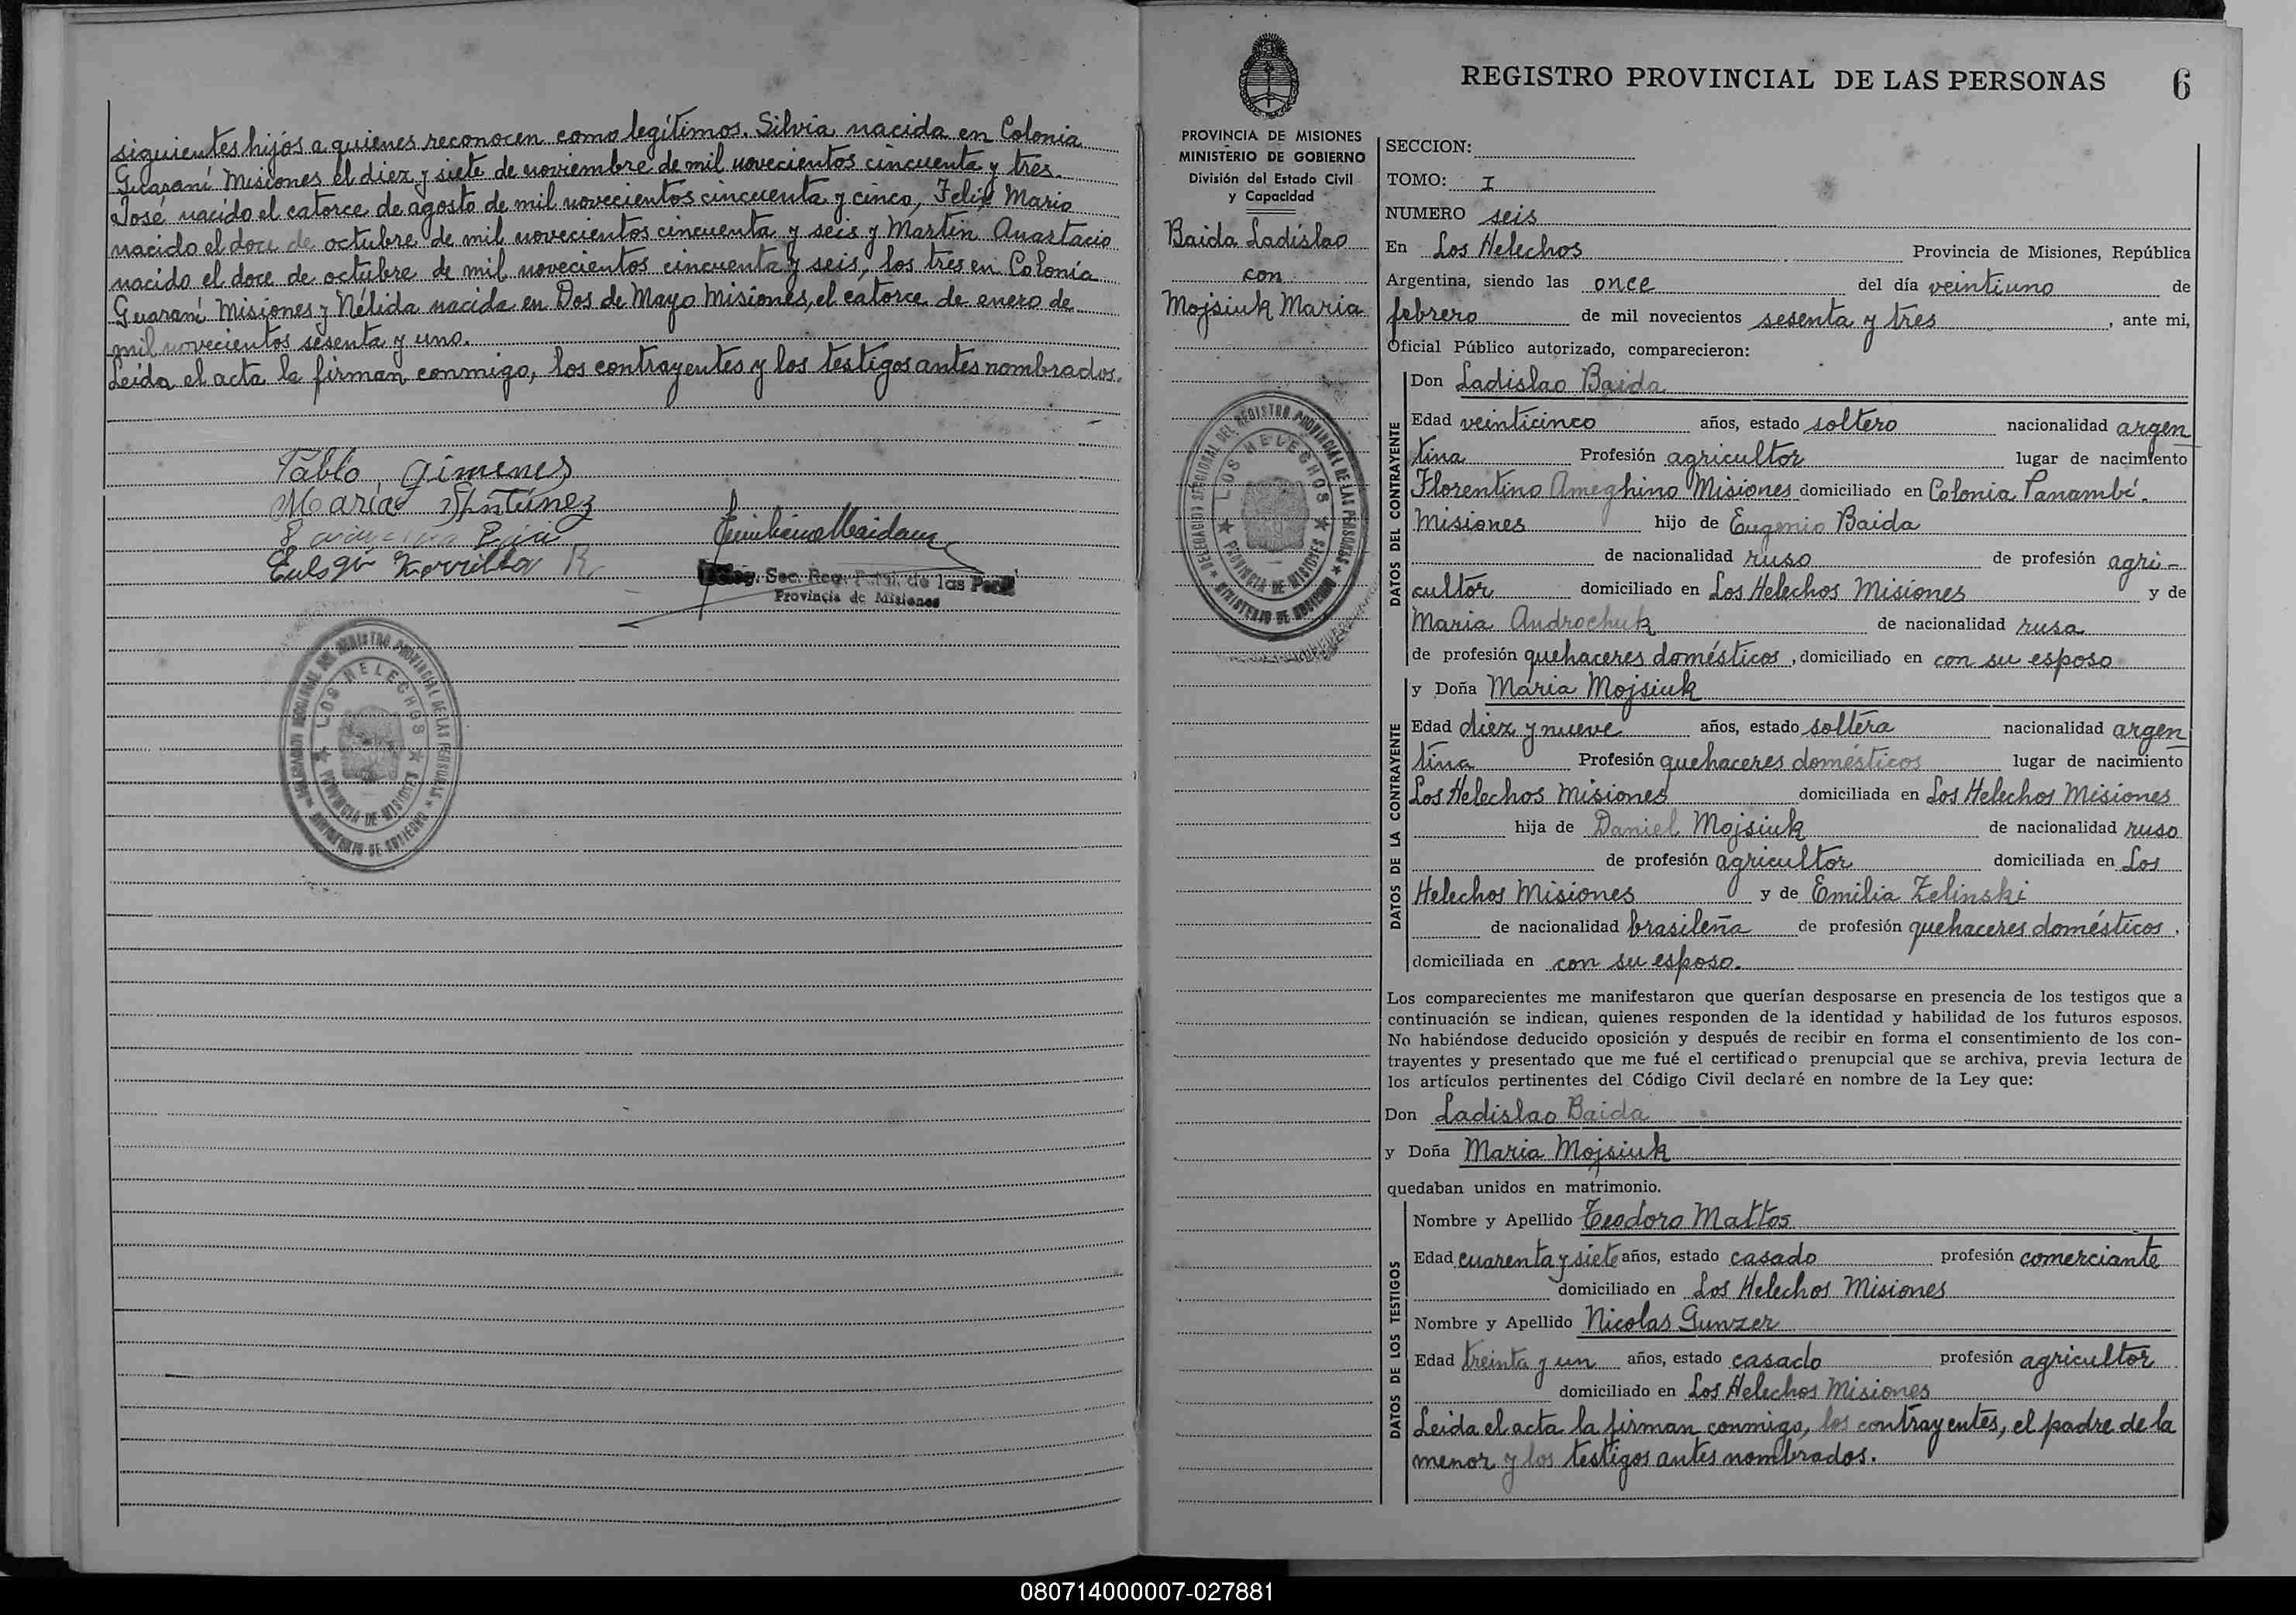 siguientes hijos a quienes reconocen como legítimos. Silvia nacida en Colonia
Guaraní Misiones el diez y siete de noviembre de mil novecientos cincuenta y tres.
José nacido el catorce de agosto de mil novecientos cincuenta y cinco, Felix Mario
nacido el doce de octubre de mil novecientos cincuenta y seis y Martín Anastacio
nacido el doce de octubre de mil novecientos cincuenta y seis, los tres en Colonia
Guaraní Misiones y Nélida nacida en Dos de Mayo Misiones, el catorce de enero de
mil novecientos sesenta y uno.
Leida el acta la firman conmigo, los contrayentes y los testigos antes nombrados.
Pablo Gimenes
Maria Antúnez
Sec. Reg. de las Pers.
Provincia de Misiones
LOS HELECHOS
PROVINCIA DE MISIONES
MINISTERIO DE GOBIERNO
REGISTRO PROVINCIAL DE LAS PERSONAS 6
PROVINCIA DE MISIONES
MINISTERIO DE GOBIERNO
División del Estado Civil
y Capacidad
Baida Ladislao
con
Mojsiuk Maria
DELEGACION SECCIONAL DEL REGISTRO PROVINCIAL DE LAS PERSONAS
LOS HELECHOS
PROVINCIA DE MISIONES
MINISTERIO DE GOBIERNO
SECCION:
TOMO: I
NUMERO seis
En Los Helechos Provincia de Misiones, República
Argentina, siendo las once del día veintiuno de
febrero de mil novecientos sesenta y tres, ante mi,
Oficial Público autorizado, comparecieron:
DATOS DEL CONTRAYENTE
Don Ladislao Baida
Edad veinticinco años, estado soltero nacionalidad argen
tina Profesión agricultor lugar de nacimiento
Florentino Ameghino Misiones domiciliado en Colonia Panambí.
Misiones hijo de Eugenio Baida
de nacionalidad ruso de profesión agri-
cultor domiciliado en Los Helechos Misiones y de
Maria Androchuk de nacionalidad rusa
de profesión quehaceres domésticos, domiciliado en con su esposo
DATOS DE LA CONTRAYENTE
y Doña Maria Mojsiuk
Edad diez y nueve años, estado soltera nacionalidad argen
tina Profesión quehaceres domésticos lugar de nacimiento
Los Helechos Misiones domiciliada en Los Helechos Misiones
hija de Daniel Mojsiuk de nacionalidad ruso
de profesión agricultor domiciliada en Los
Helechos Misiones y de Emilia Zelinski
de nacionalidad brasileña de profesión quehaceres domésticos,
domiciliada en con su esposo.
Los comparecientes me manifestaron que querían desposarse en presencia de los testigos que a
continuación se indican, quienes responden de la identidad y habilidad de los futuros esposos.
No habiéndose deducido oposición y después de recibir en forma el consentimiento de los con-
trayentes y presentado que me fué el certificado prenupcial que se archiva, previa lectura de
los artículos pertinentes del Código Civil declaré en nombre de la Ley que:
Don Ladislao Baida
y Doña Maria Mojsiuk
quedaban unidos en matrimonio.
DATOS DE LOS TESTIGOS
Nombre y Apellido Teodoro Mattos
Edad cuarenta y siete años, estado casado profesión comerciante
domiciliado en Los Helechos Misiones
Nombre y Apellido Nicolas Gunzer
Edad treinta y un años, estado casado profesión agricultor
domiciliado en Los Helechos Misiones
Leida el acta la firman conmigo, los contrayentes, el padre de la
menor y los testigos antes nombrados.
080714000007-027881